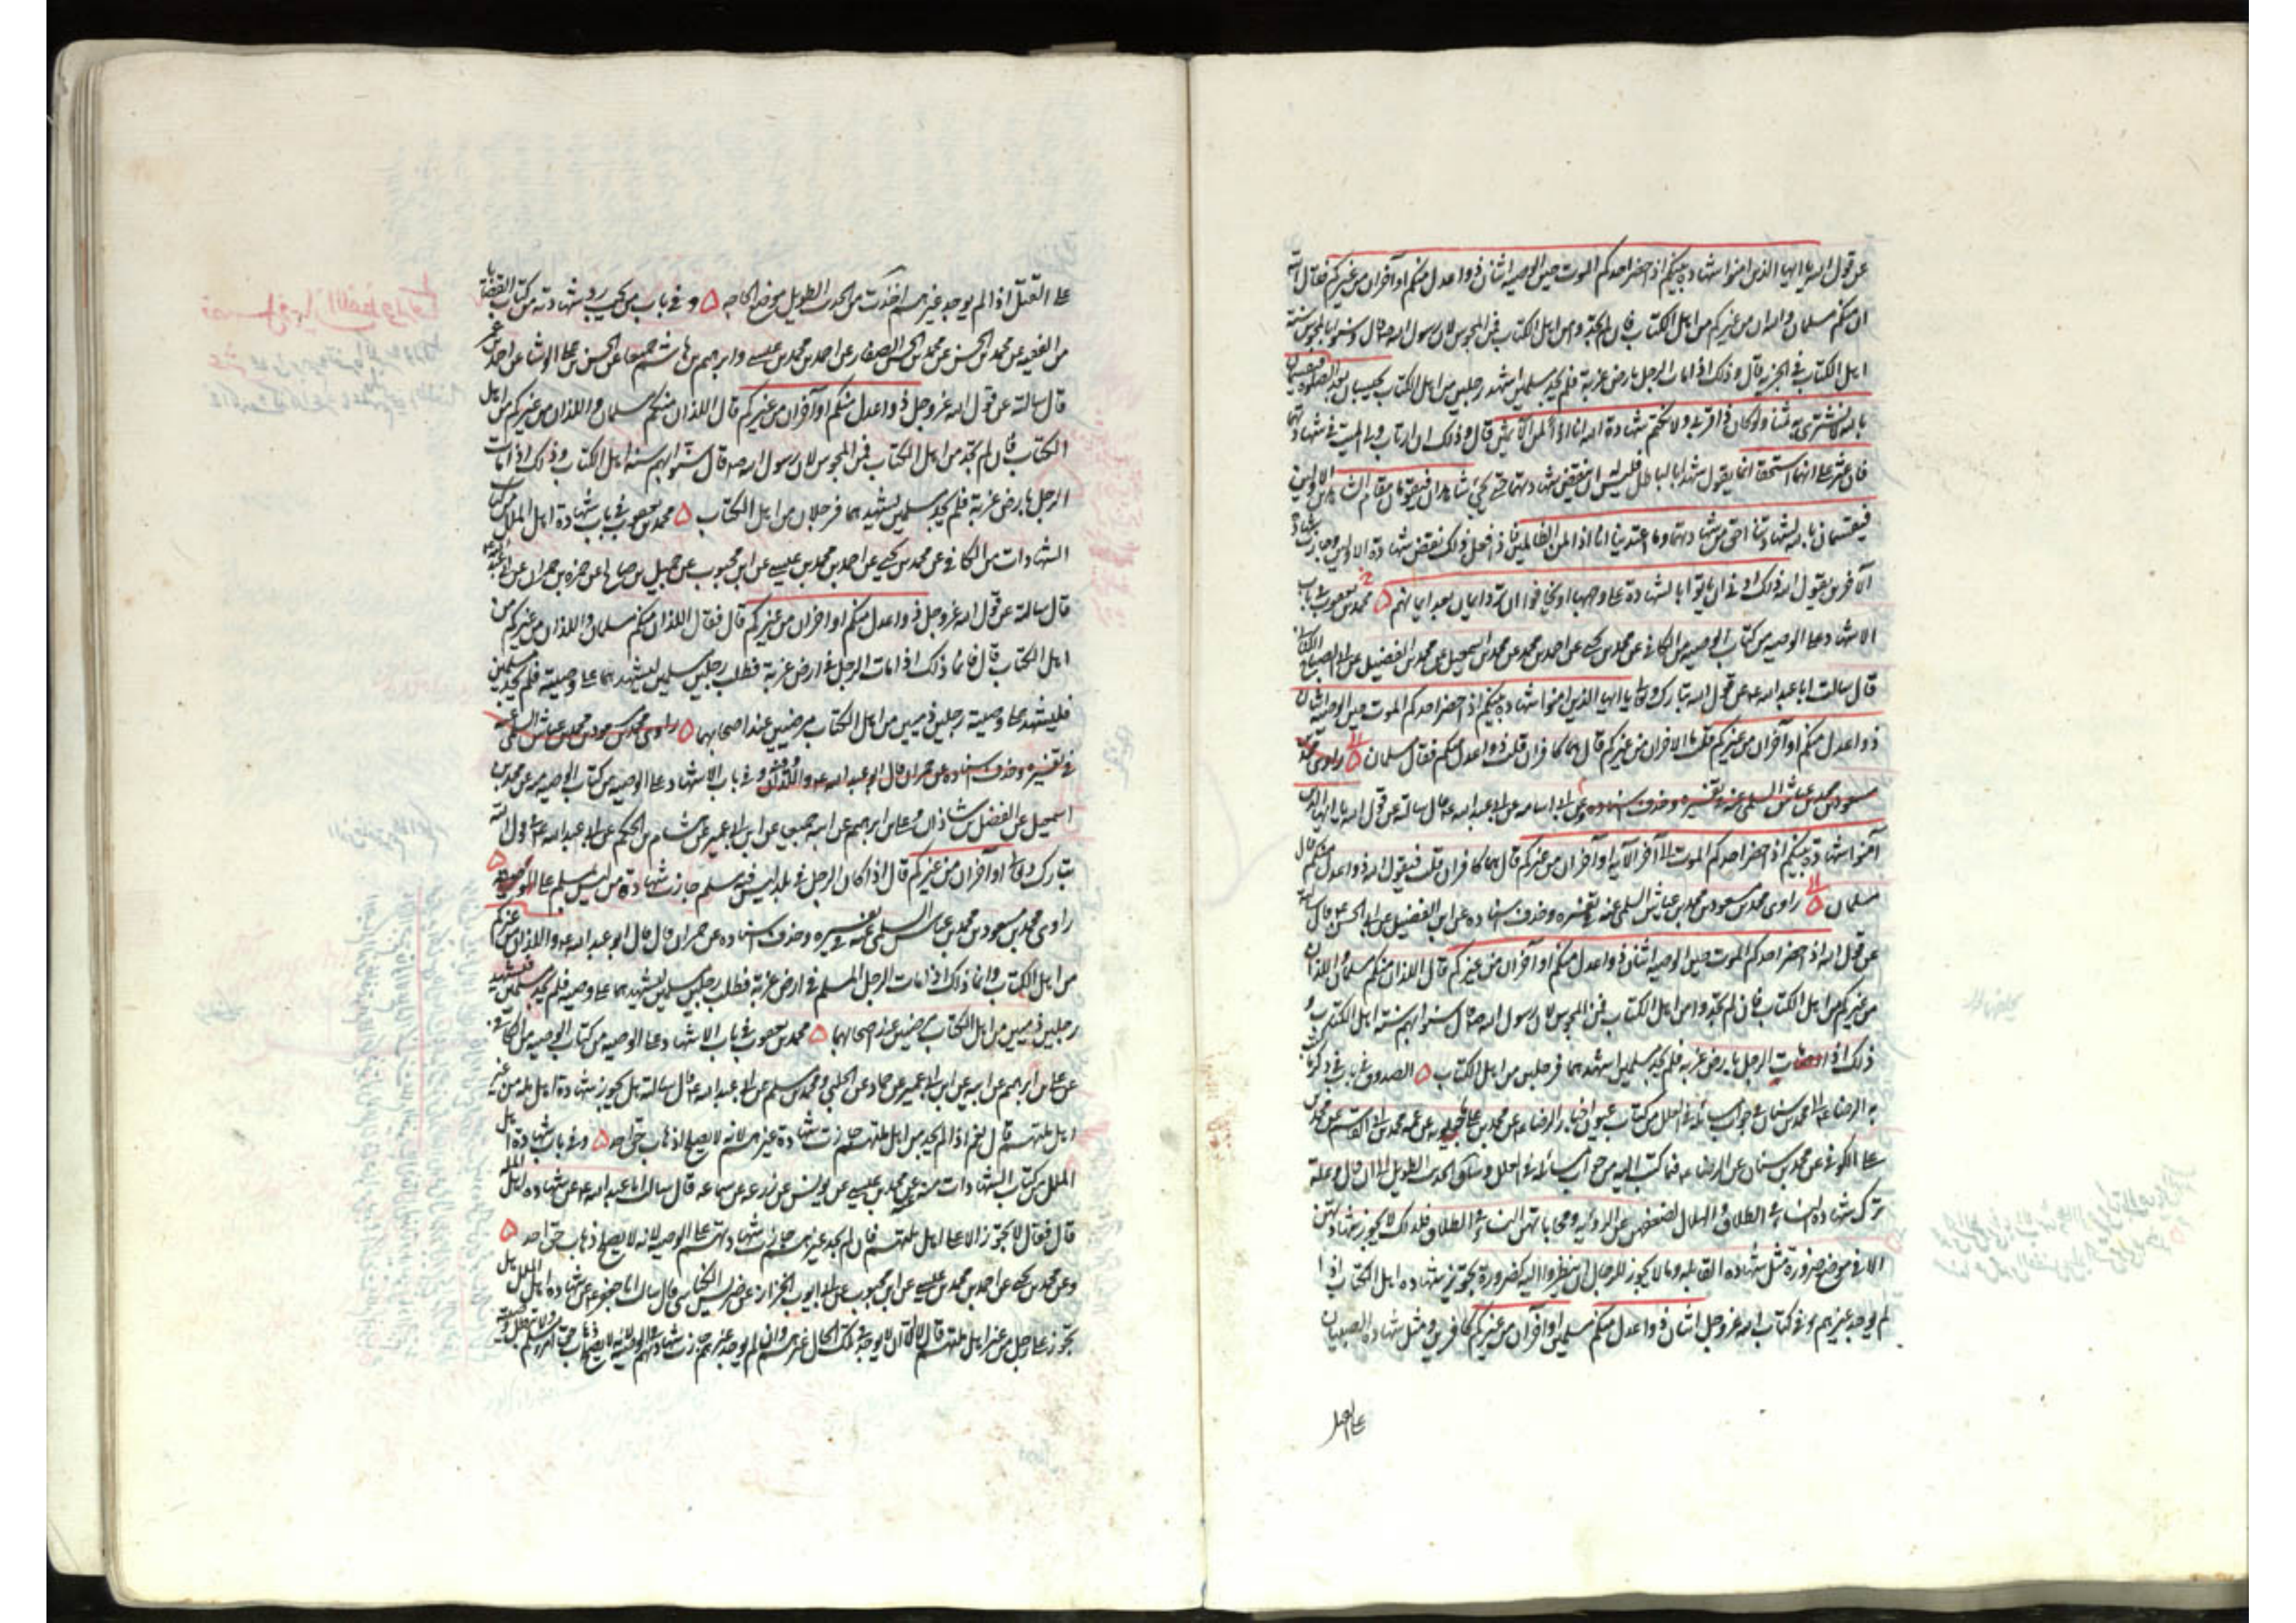 عن قول الله يا ايها الذين امنوا شهادة بينكم اذا حضر احدكم الموت حين الوصيه اثنان ذوا عدل منكم او آخران من غيركم فقال اللذان
منكم مسلمان واللذان من غيركم من اهل الكتاب فان لم تجدوا من اهل الكتاب فمن المجوس لان رسول الله ص قال وسنوا بالمجوس سنة
اهل الكتاب في الجزيه قال وذلك اذا مات الرجل بارض غربة فلم يجد مسلمين اشهد رجلين من اهل الكتاب يحبسان بعد الصلوة فيقسمان
بالله لا نشترى به ثمنا ولو كان ذا قربى ولا نكتم شهادة الله انا اذا لمن الآثمين قال وذلك ان ارتاب ولى الميت في شهادتهما
فان عثر على انهما استحقا اثما يقول شهدا بالباطل فليس له ان ينقض شهادتهما حتى يجئ شاهدان فيقومان مقام الشاهدين الاولين
فيقسمان بالله لشهادتنا احق من شهادتهما وما اعتدينا انا اذا لمن الظالمين فاذا فعل ذلك نقض شهادة الاولين وجازت شهادة
الآخرين يقول الله ذلك ادنى ان ياتوا بالشهادة على وجهها او يخافوا ان ترد ايمان بعد ايمانهم ۵ محمد بن يعقوب في باب
الاشهاد على الوصيه من كتاب الوصيه من الكافى عن محمد بن يحيى عن احمد بن محمد عن محمد بن اسمعيل عن محمد بن الفضيل عن ابى الصباح الكنانى
قال سالت ابا عبد الله ع عن قول الله تبارك وتعالى يا ايها الذين امنوا شهادة بينكم اذا حضر احدكم الموت حين الوصية اثنان
ذوا عدل منكم او آخران من غيركم قلت ما الاخران من غيركم قال هما كافران قلت ذوا عدل منكم فقال مسلمان ۵ راوى محمد بن
مسعود بن محمد بن عياش السلمى عنه في تفسيره وحذف اسناده عن ابى اسامه عن ابى عبد الله ع قال سالته عن قول الله يا ايها الذين
آمنوا شهادة بينكم اذا حضر احدكم الموت الى آخر الآية او آخران من غيركم قال هما كافران قلت فيقول الله ذوا عدل منكم قال
مسلمان ۵ راوى محمد بن مسعود بن محمد بن عياش السلمى عنه في تفسيره وحذف اسناده عن ابن الفضيل عن ابى الحسن ع قال سالته
عن قول الله اذا حضر احدكم الموت حين الوصيه اثنان ذوا عدل منكم او آخران من غيركم قال اللذان منكم مسلمان واللذان
من غيركم من اهل الكتاب فان لم تجدوا من اهل الكتاب فمن المجوس لان رسول الله ص قال سنوا بهم سنة اهل الكتاب و
ذلك اذا مات الرجل بارض غربة فلم يجد مسلمين اشهد هما فرجلين من اهل الكتاب ۵ الصدوق في باب في ذكر ما كتب
به الرضا ع الى محمد بن سنان في جواب مسائله في العلل من كتاب عيون اخبار الرضا ع عن محمد بن على ماجيلويه عن عمه محمد بن ابى القاسم عن محمد بن
على الكوفى عن محمد بن سنان عن الرضا ع فيما كتب اليه من جواب مسائله في العلل وساق الحديث الطويل الى ان قال وعلة
ترك شهادة النساء في الطلاق والهلال لضعفهن عن الرؤية ومحاباتهن النساء في الطلاق فلذلك لا يجوز شهادتهن
الا في موضع ضرورة مثل شهادة القابله وما لا يجوز للرجال ان ينظروا اليه كضرورة تجويز شهادة اهل الكتاب اذا
لم يوجد غيرهم وفى كتاب الله عز وجل اثنان ذوا عدل منكم مسلمين او آخران من غيركم كافرين ومثل شهادة الصبيان
على القتل
على القتل اذا لم يوجد غيرهم اخذت من الحديث الطويل موضع الحاجه ۵ وفى باب من يجب رد شهادته من كتاب القضايا
من الفقيه عن محمد بن الحسن عن محمد بن الحسن الصفار عن احمد بن محمد بن عيسى وابراهيم بن هاشم جميعا عن الحسن بن على الوشا عن احمد بن عمر
قال سالته عن قول الله عز وجل ذوا عدل منكم او آخران من غيركم قال اللذان منكم مسلمان واللذان من غيركم من اهل
الكتاب فان لم تجد من اهل الكتاب فمن المجوس لان رسول الله ص قال سنوا بهم سنة اهل الكتاب وذلك اذا مات
الرجل بارض غربة فلم يجد مسلمين يشهدهما فرجلان من اهل الكتاب ۵ محمد بن يعقوب في باب شهادة اهل الملل من كتاب
الشهادات من الكافى عن محمد بن يحيى عن احمد بن محمد بن عيسى عن ابن محبوب عن جميل بن صالح عن حمزه بن حمران عن ابى عبد الله ع
قال سالته عن قول الله عز وجل ذوا عدل منكم او اخران من غيركم قال فقال اللذان منكم مسلمان واللذان من غيركم من
اهل الكتاب قال فانما ذلك اذا مات الرجل في ارض غربة فطلب رجلين مسلمين ليشهدهما على وصيته فلم يجد مسلمين
فليشهد على وصيته رجلين ذميين من اهل الكتاب مرضيين عند اصحابهما ۵ راوى محمد بن مسعود بن محمد بن عياش السلمى عنه
في تفسيره وحذف اسناده عن حمران قال ابو عبد الله ع واللذان وفى باب الاشهاد على الوصيه من كتاب الوصيه منه عن محمد بن
اسمعيل عن الفضل بن شاذان وعلى بن ابراهيم عن ابيه جميعا عن ابن ابى عمير عن هشام بن الحكم عن ابى عبد الله ع في قول الله
تبارك وتعالى او آخران من غيركم قال اذا كان الرجل في بلد ليس فيه مسلم جازت شهادة من ليس بمسلم على الوصية ۵
راوى محمد بن مسعود بن محمد بن عياش السلمى عنه في تفسيره وحذف اسناده عن حمران قال قال ابو عبد الله ع واللذان من غيركم
من اهل الكتاب وانما ذلك اذا مات الرجل المسلم في ارض غربة فطلب رجلين مسلمين يشهدهما على وصيه فلم يجد مسلمين فليشهد
رجلين ذميين من اهل الكتاب مرضيين عند اصحابهما ۵ محمد بن يعقوب في باب الاشهاد على الوصيه من كتاب الوصيه من الكافى
عن على بن ابراهيم عن ابيه عن ابن ابى عمير عن حماد عن الحلبى ومحمد بن مسلم عن ابى عبد الله ع قال سالته هل يجوز شهادة اهل مله من غير
اهل ملتهم قال نعم اذا لم يجد من اهل ملتهم جازت شهادة غيرهم لانه لا يصلح اذهاب حق احد ۵ وفى باب شهادة اهل
الملل من كتاب الشهادات منه عن محمد بن عيسى عن يونس عن زرعه عن سماعه قال سالت ابا عبد الله ع عن شهادة اهل المله
قال فقال لا تجوز الا على اهل ملتهم فان لم تجد غيرهم جازت شهادتهم على الوصيه لانه لا يصلح ذهاب حق احد ۵
وعن محمد بن يحيى عن احمد بن محمد بن عيسى عن ابن محبوب عن ابى ايوب الخزاز عن ضريس الكناسى قال سالت ابا جعفر ع عن شهادة اهل الملل هل
تجوز على رجل من غير اهل ملتهم فقال لا الا ان لا يوجد في تلك الحال غيرهم وان لم يوجد غيرهم جازت شهادتهم في الوصية لانه لا يصلح ذهاب حق امرء مسلم